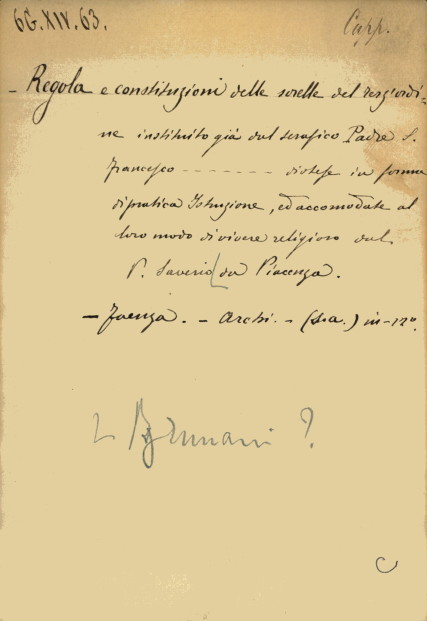 6G.XIV.63.
Capp.
- Regola e constituzioni delle sorelle del terz'ordi=
ne instituito già dal serafico Padre S.
Francesco - - - - - - - distese in forma
di pratica Istruzione, ed accomodate al
loro modo di vivere religioso dal
P. Saverio da Piacenza.
- Faenza. - Archi. - (s.a.) in-12°.